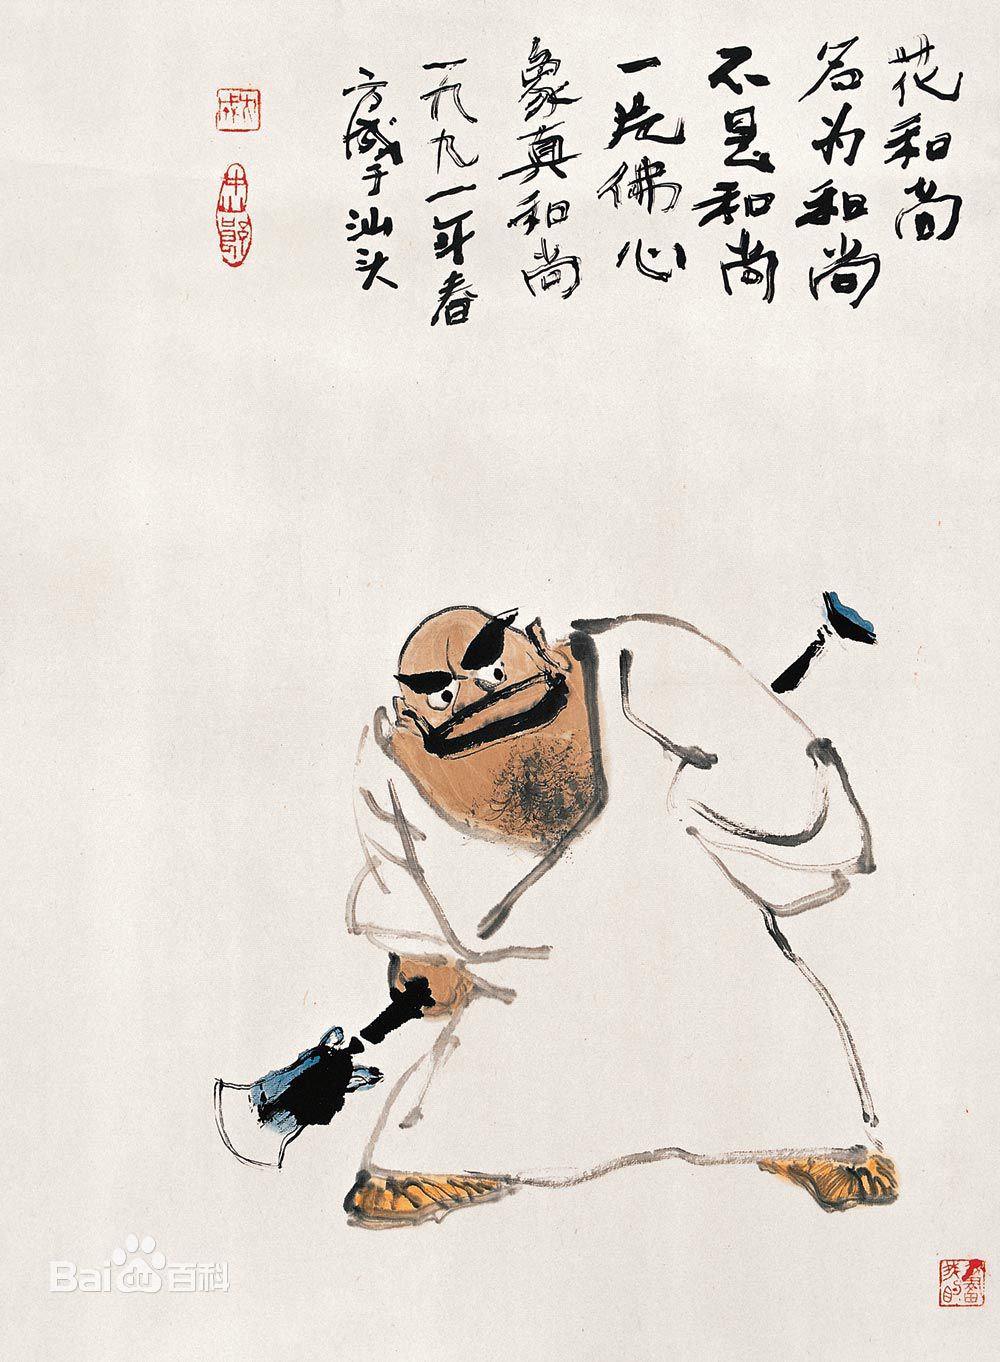 花和尚
名为和尚
不是和尚
一片佛心
象真和尚
一九九一年春
方成于汕头
Baidu百科